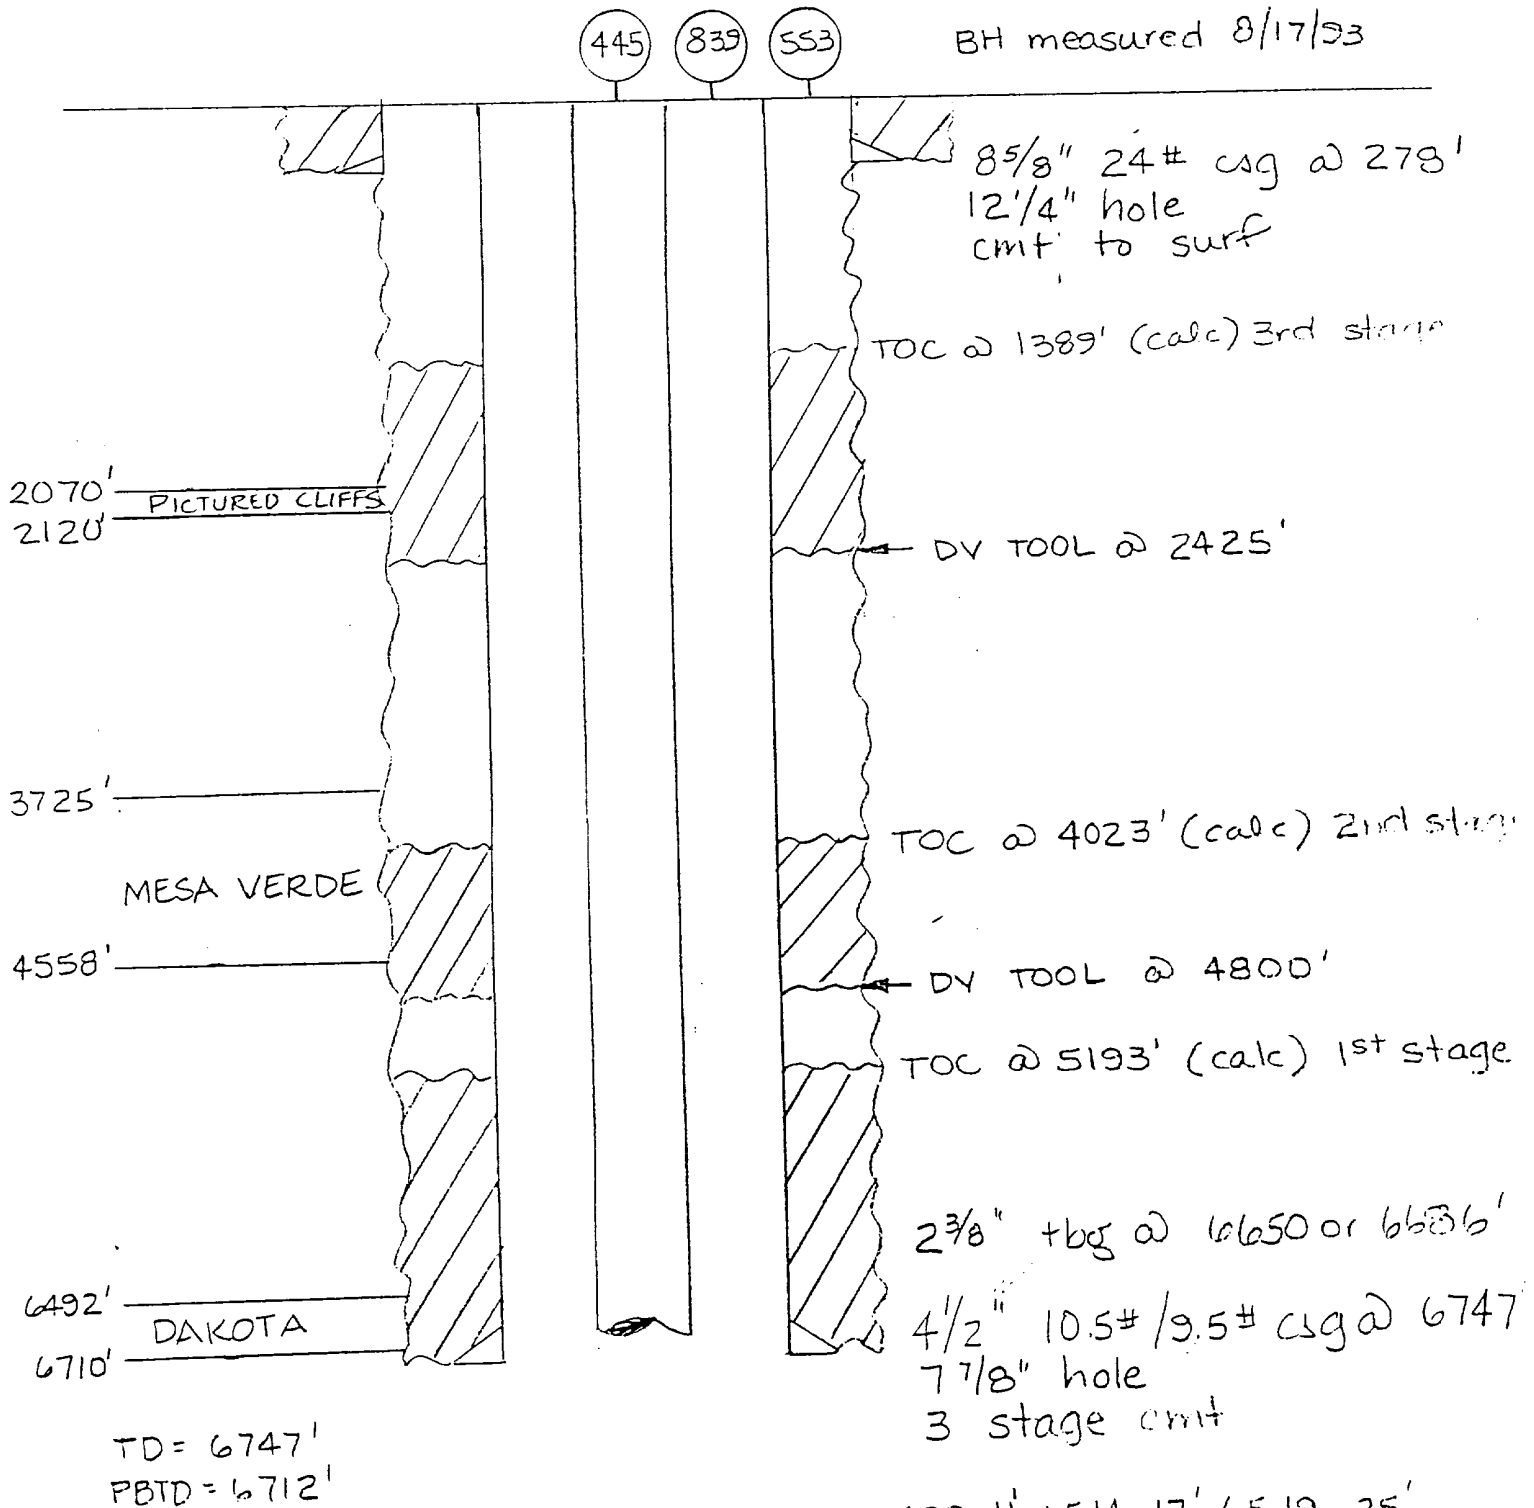 445 839 553 BH measured 8/17/93
8 5/8" 24# csg @ 278'
12 1/4" hole
cmt to surf
TOC @ 1389' (calc) 3rd stage
2070'
PICTURED CLIFFS
2120'
DV TOOL @ 2425'
3725'
TOC @ 4023' (calc) 2nd stage
MESA VERDE
4558'
DV TOOL @ 4800'
TOC @ 5193' (calc) 1st stage
2 3/8" tbg @ 6650 or 6636'
6492'
DAKOTA
4 1/2" 10.5#/9.5# csg @ 6747'
6710'
7 7/8" hole
3 stage cmt
TD = 6747'
PBTD = 6712'